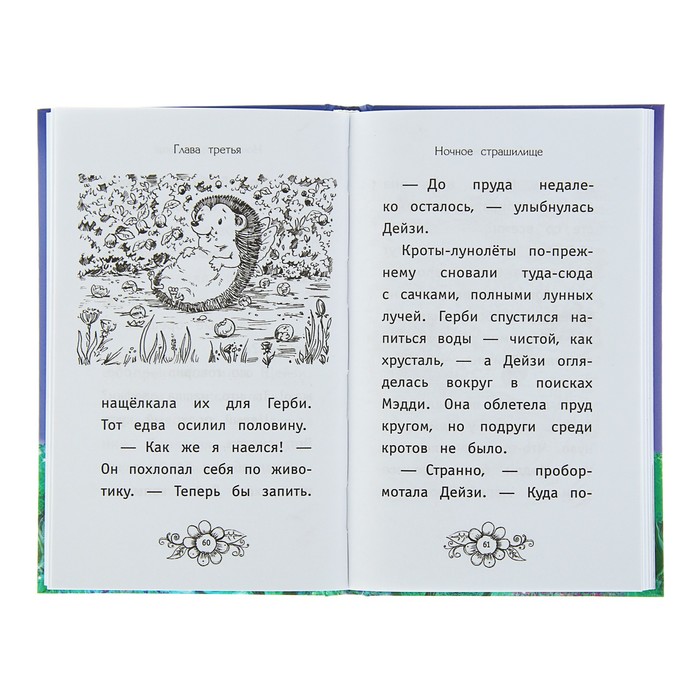 Глава третья
нащёлкала их для Герби.
Тот едва осилил половину.
— Как же я наелся! —
Он похлопал себя по живо-
тику. — Теперь бы запить.
60
Ночное страшилище
— До пруда недале-
ко осталось, — улыбнулась
Дейзи.
Кроты-лунолёты по-преж-
нему сновали туда-сюда
с сачками, полными лунных
лучей. Герби спустился на-
питься воды — чистой, как
хрусталь, — а Дейзи огля-
делась вокруг в поисках
Мэдди. Она облетела пруд
кругом, но подруги среди
кротов не было.
— Странно, — пробор-
мотала Дейзи. — Куда по-
61